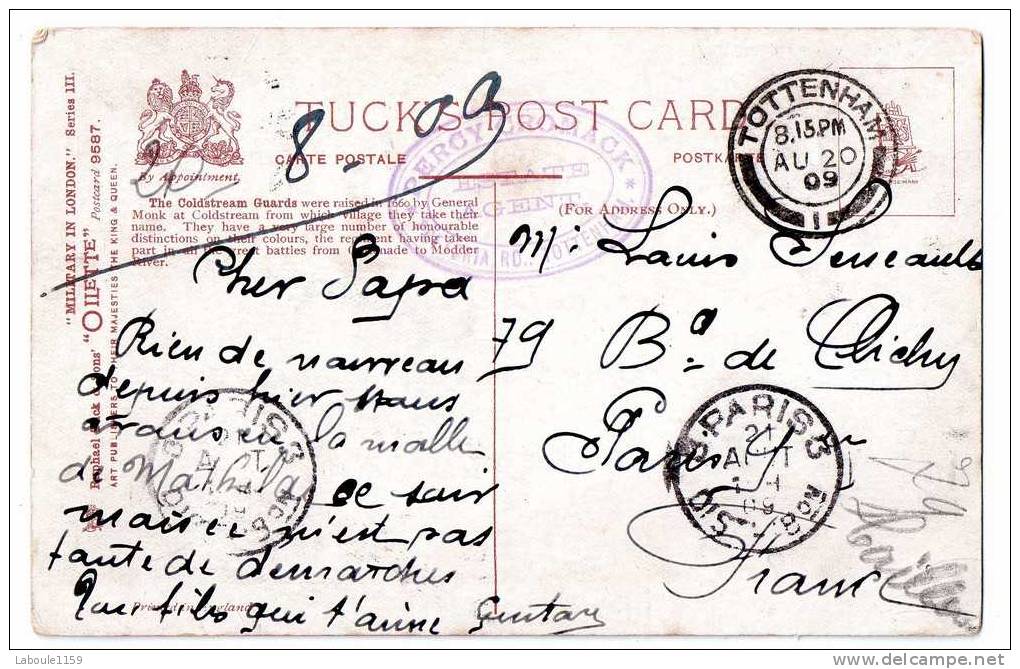 "MILITARY IN LONDON." Series III.
Raphael Tuck & Sons' "OILETTE" Postcard 9587.
ART PUBLISHERS TO THEIR MAJESTIES THE KING & QUEEN.
By Appointment,
TUCK'S POST CARD
CARTE POSTALE
POSTKARTE
8-09
The Coldstream Guards were raised in 1660 by General
Monk at Coldstream from which village they take their
name. They have a very large number of honourable
distinctions on their colours, the regiment having taken
part in all the great battles from Grenade to Modder
River.
(FOR ADDRESS ONLY.)
ESTATE
AGENT
TOTTENHAM
8.15.PM
AU 20
09
1
Cher Papa
Rien de nouveau
depuis hier nous
avons eu la malle
de Mathilde ce soir
n'est pas
tante de demarches
Ton fils qui t'aime Gustave
Mr Louis
79 Bd de Clichy
Paris
France
PARIS 3
21
09
PARIS 3
09
79
Printed in England
Laboule1159
www.delcampe.net